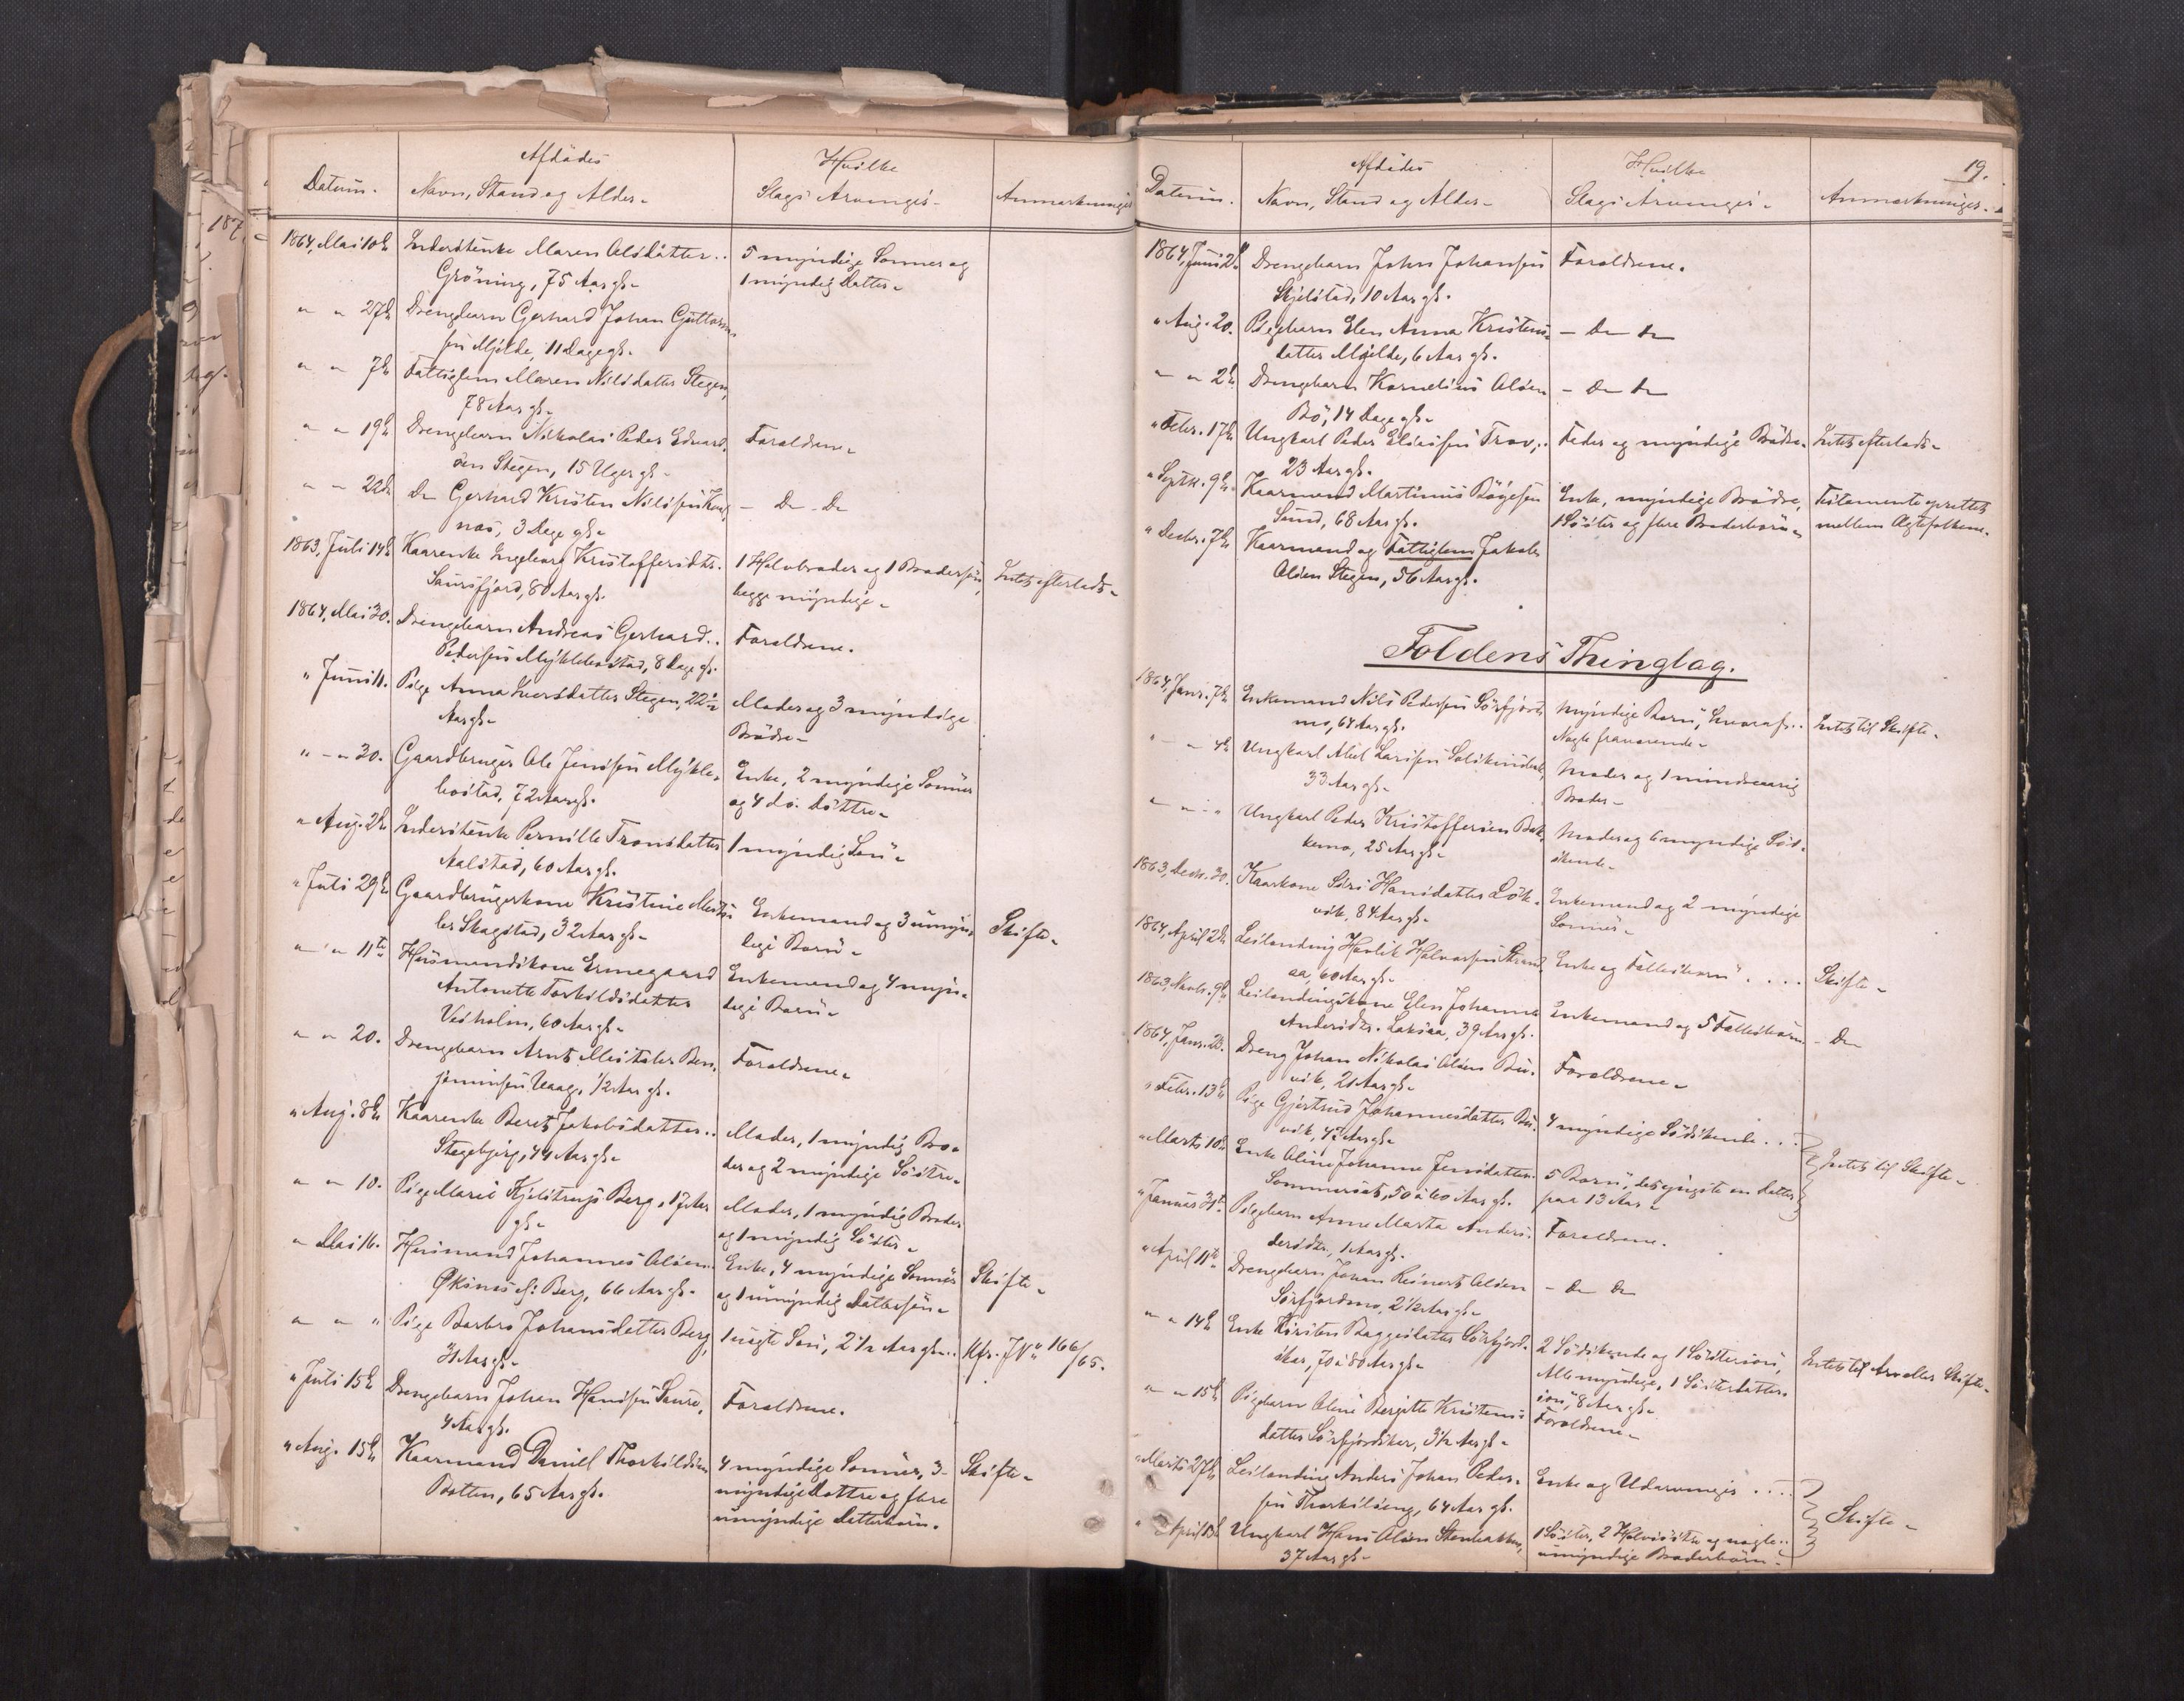 Datum.
Afdødes
Navn, Stand og Alder.
Hvilke
Slags Arvinger.
Anmærkninger
1864, Mai 10de
Inderstenke Maren Olsdatter
Gröning, 75 Aar gl.
5 myndige Sønner og
1 myndig Datter.
" " 27de
Drengebarn Gerhard Johan Guttorm-
sen Mjelde, 11 Dage gl.
" " 7de
Fattiglem Maren Nilsdatter Stegen,
78 Aar gl.
" " 19de
Drengebarn Nikolai Peder Edvard-
sen Stegen, 15 Uger gl.
Forældrene.
" " 22de
Do Gerhard Kristen Nilssen
næs, 3 Dage gl.
- Do Do
1863, Juli 14de
Kaarenke Ingeborg Kristoffersdtr.
Saursfjord, 80 Aar gl.
1 Halvbroder og 1 Brodersøn,
begge myndige.
Intet efterladt.
1864, Mai 30.
Drengebarn Andreas Gerhard
Pedersen Myklebostad, 8 Dage gl.
Forældrene.
" Juni 11.
Pige Anna Iversdatter Stegen, 22 1/2
Aar gl.
Moder og 3 myndige
Brødre.
" " 30.
Gaardbruger Ole Jensen Mykle-
bostad, 72 Aar gl.
Enke, 2 myndige Sønner
og 4 do. Døttre.
" Aug. 2de
Inderstenke Pernille Tronsdatter
Aalstad, 60 Aar gl.
1 myndig Søn.
" Juli 29de
Gaardbrugerkone Kristine
Skagstad, 32 Aar gl.
Enkemand og 3 umyn-
dige Børn.
Skifte.
" " 11te
Husmandskone Ermegaard
Antonette Torkildsdatter
Vedholm, 60 Aar gl.
Enkemand og 4 myn-
dige Børn.
" " 20.
Drengebarn Arnt Meitaler Ben-
jaminsen Vaag, 1/2 Aar gl.
Forældrene.
" Aug. 8de
Kaarenke Beret Jakobsdatter
Stegebjerg, 44 Aar gl.
Moder, 1 myndig Bro-
der og 2 myndige Søstre.
" " 10.
Pige Marie Kjelstrup Berg, 17 Aar
gl.
Moder, 1 myndig Broder
og 1 myndig Søster.
" Mai 16.
Husmand Johannes Olsen
Øksnes ell: Berg, 66 Aar gl.
Enke, 4 myndige Sønner
og 1 umyndig Dattersøn.
Skifte.
" " "
Pige Barbro Johansdatter Berg,
31 Aar gl.
1 uægte Søn, 2 1/2 Aar gl.
Kfr. JN: 166/65.
" Juli 15de
Drengebarn Johan Hansen Saure,
4 Aar gl.
Forældrene.
" Aug. 15de
Kaarmand Daniel Thorkildsen
Botten, 65 Aar gl.
4 myndige Sønner, 3
myndige Døttre og flere
umyndige Datterbørn.
Skifte.
19.
Datum.
Afdødes
Navn, Stand og Alder.
Hvilke
Slags Arvinger.
Anmærkninger.
1864, Juni 2de
Drengebarn John Johansen
Skjelstad, 10 Aar gl.
Forældrene.
" Aug. 20.
Pigebarn Elen Anna Kristens-
datter Mjelde, 6 Aar gl.
- Do Do
" " 2de
Drengebarn Kornelius Olsen
Bø, 14 Dage gl.
- Do Do
" Febr. 17de
Ungkarl Peder Eliassen Trov,
23 Aar gl.
Feder og myndige Brødre.
Intet efterladt.
" Septbr. 9de
Kaarmand Martinus Børgesen
Sund, 68 Aar gl.
Enke, myndige Brødre,
1 Søster og flere Broderbørn.
Testamente oprettet
mellem Ægtefolkene.
" Decbr. 7de
Kaarmand og Fattiglem Jakob
Olsen Stegen, 56 Aar gl.
Foldens Thinglag.
1864, Janr. 7de
Enkemand Nils Pedersen Sørfjord-
mo, 64 Aar gl.
Myndige Børn, hvoraf
Nogle fraværende.
Intet til Skifte.
" " 4de
Ungkarl Abel Larsen
33 Aar gl.
Moder og 1 mindreaarig
Broder.
" " "
Ungkarl Peder Kristoffersen Bak-
kemo, 25 Aar gl.
Moder og 6 myndige Sød-
skende.
1863, Decbr. 30.
Kaarkone Siri Hansdatter Løk-
vik, 84 Aar gl.
Enkemand og 2 myndige
Sønner.
1864, April 2de
Leilænding Havlik Halvorsen Strand-
aa, 60 Aar gl.
Enke og Fællesbørn . . . .
Skifte.
1863, Novbr. 9de
Leilændingskone Elen Johanna
Andersdtr. Laksaa, 39 Aar gl.
Enkemand og 5 Fællesbørn
- Do
1864, Janr. 28.
Dreng Johan Nikolai Olsen Bu-
vik, 21 Aar gl.
Forældrene.
" Febr. 13de
Pige Gjertrud Johannesdatter Bu-
vik, 47 Aar gl.
4 myndige Sødskende . . .
Intet til Skifte.
" Marts 10de
Enke Oline Johanna Jensdatter
Sommerset, 50 à 60 Aar gl.
5 Børn, det yngste en Datter
paa 13 Aar.
" Januar 31te
Pigebarn Anne Marta Anders-
dersdtr., 1 Aar gl.
Forældrene.
" April 11te
Drengebarn Johan Reinert Olsen
Sørfjordmo, 2 1/2 Aar gl.
- Do Do
" " 14de
Enke Kirsten Baggesdatter Sørfjord-
skar, 70 à 80 Aar gl.
2 Sødskende og 1 Søstersøn,
Alle myndige, 1 Søsterdatter-
søn, 8 Aar gl.
Intet til Arv eller Skifte.
" " 15de
Pigebarn Oline Bergitte Kristens-
datter Sørfjordskar, 3 1/2 Aar gl.
Forældrene.
" Marts 27de
Leilænding Anders Johan Peder-
sen Thorkilseng, 64 Aar gl.
Enke og Udarvinger . . . .
Skifte.
" April 13de
Ungkarl Hans Olsen Stenbakken,
37 Aar gl.
1 Søster, 2 Halvsøstre og nogle
umyndige Broderbørn.